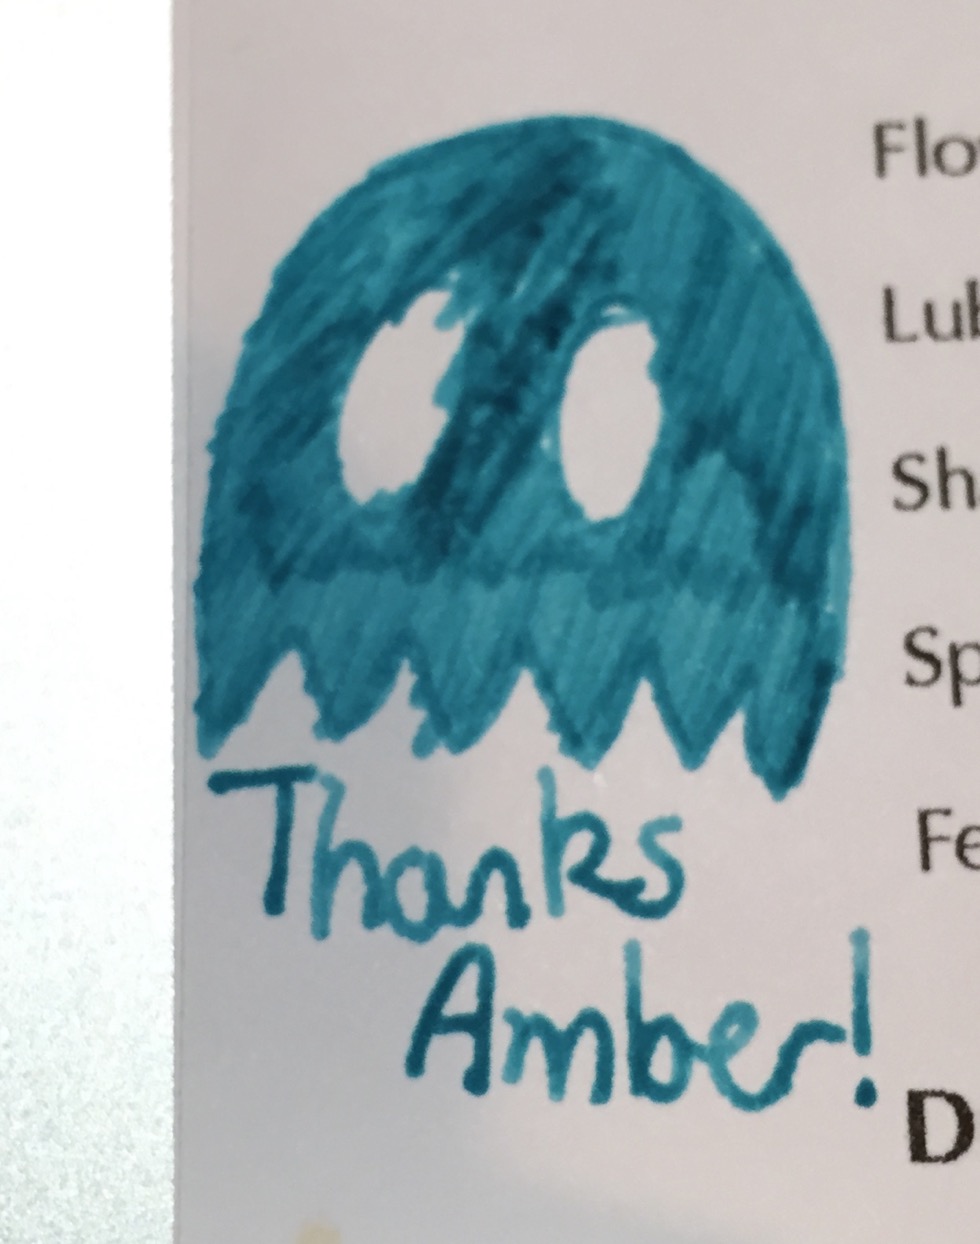 Thanks
Amber!
Flo
Lu
Sh
Sp
Fe
D